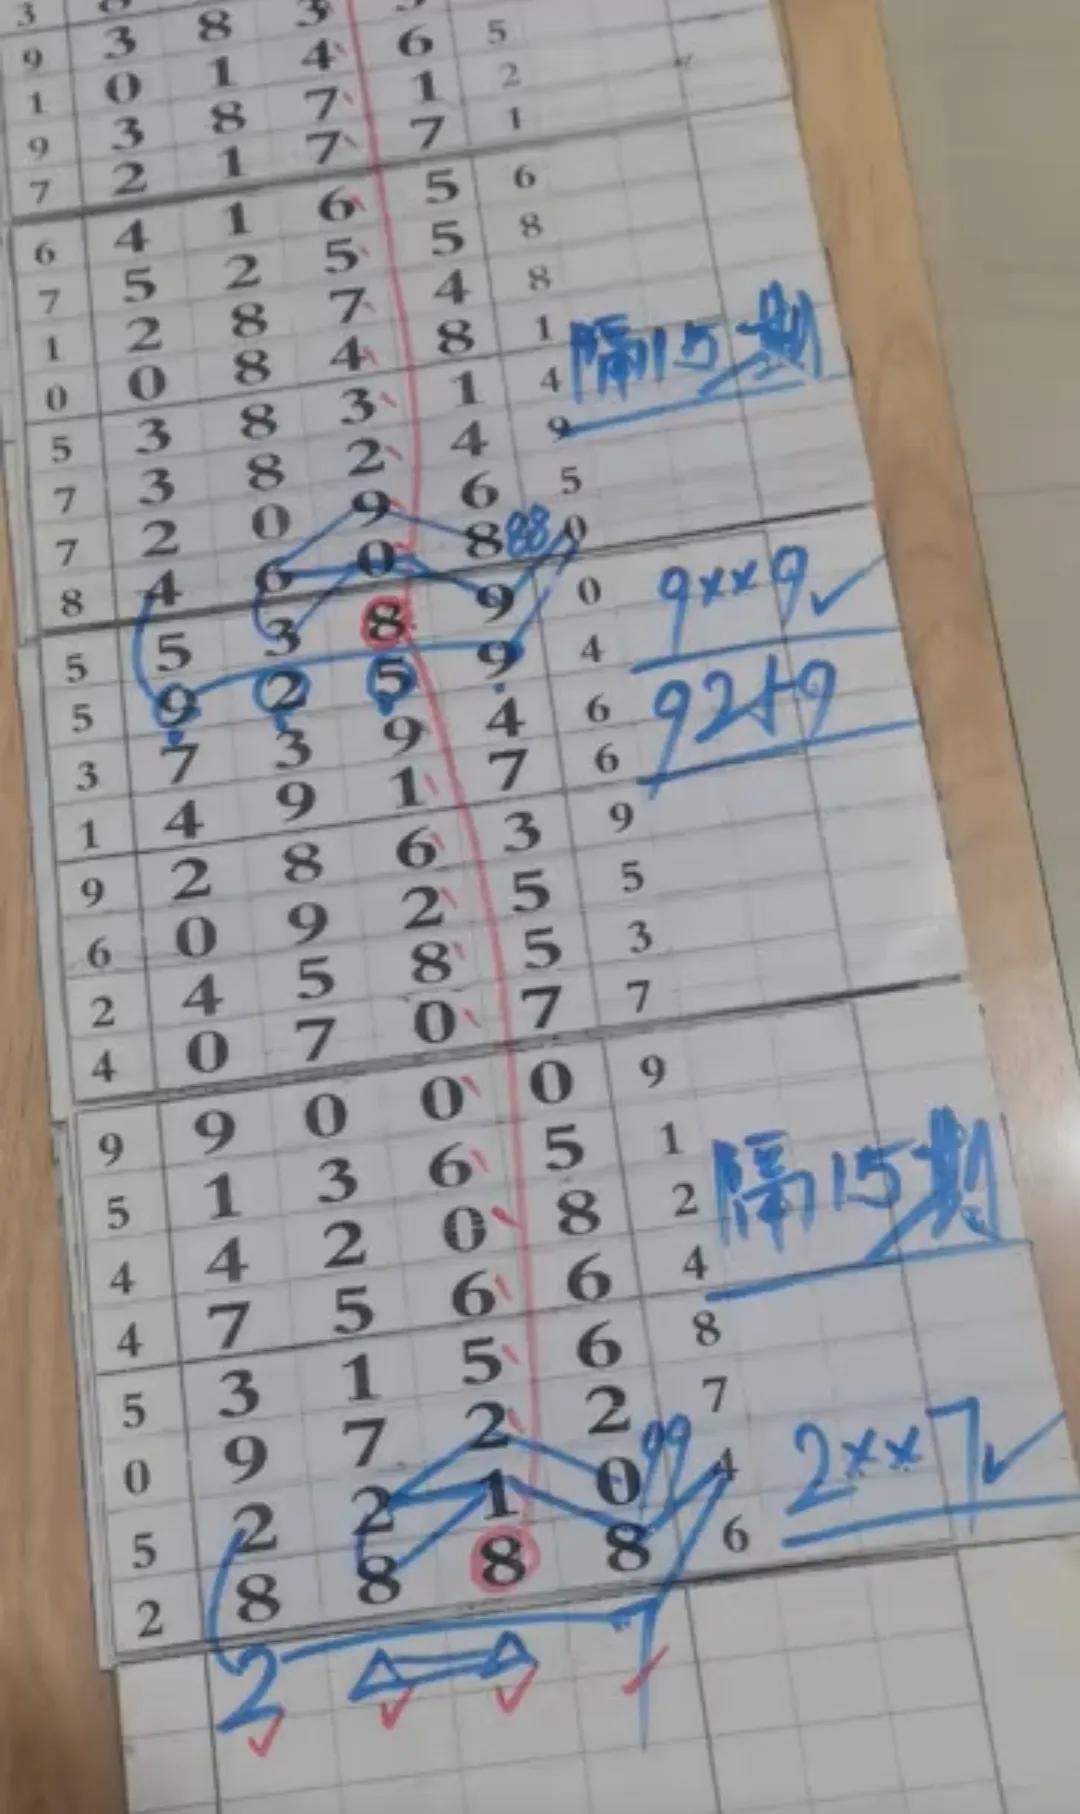 9 3 8 3
1 0 1 4 6 5
9 3 8 7 1 2
7 2 1 7 7 1
6 4 1 6 5 6
7 5 2 5 5 8
1 2 8 7 4 8
0 0 8 4 8 1
隔15期
5 3 8 3 1 4
7 3 8 2 4 9
7 2 0 9 6 5
8 4 6 0 8 88 0
5 5 3 8 9 0
9××9
5 9 2 5 9 4
9259
3 7 3 9 4 6
1 4 9 1 7 6
9 2 8 6 3 9
6 0 9 2 5 5
2 4 5 8 5 3
4 0 7 0 7 7
9 9 0 0 0 9
5 1 3 6 5 1
隔15期
4 4 2 0 8 2
4 7 5 6 6 4
5 3 1 5 6 8
0 9 7 2 2 7
5 2 2 1 0 99 4
2××7
2 8 8 8 8 6
2 7